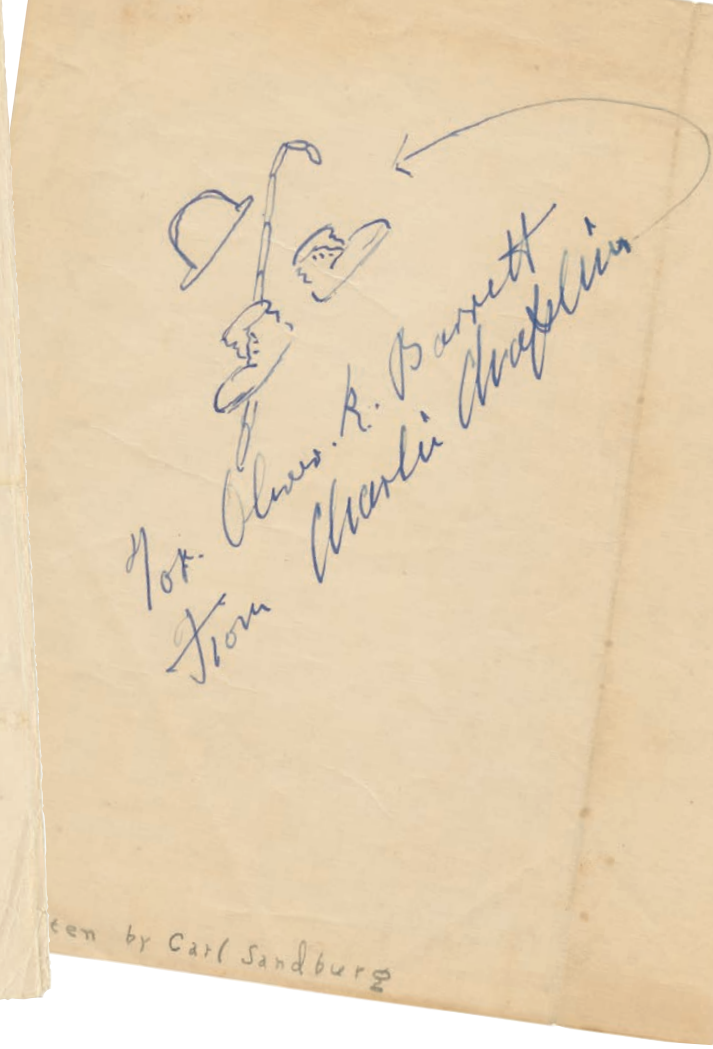 For. Oliver. K. Barrett
From Charlie Chaplin
ten by Carl Sandburg